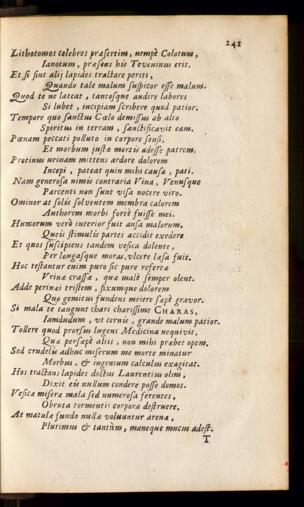 241
Lithotomos celebres præsertim, nempè Colotum,
Ianotum, præsens his Teveninus erit.
Et si sint alij lapides tractare periti,
Quando tale malum suspicor esse malum.
Quod te ne lateat, tantosque audire labores
Si lubet, incipiam scribere quod patior.
Tempore quo sanctus Cœlo demissus ab alto
Spiritus in terram, sanctificavit eam.
Pœnam peccati polluto in corpore sensi,
Et morbum justæ mortis adesse patrem.
Protinus urinam mittens ardore dolorem
Incepi, pateat quin mihi causa, pati.
Nam generosa nimis contraria Vina, Venusque
Parcenti non sunt visa nocere viro.
Ominor at solis solventem membra calorem
Authorem morbi fortè fuisse mei.
Humorum verò interior fuit ansa malorum,
Queis stimulis partes accidit exedere
Et quos suscipiens tandem vesica dolente,
Per longasque moras, vlcere læsa fuit.
Hoc testantur enim puro sic pure refertæ
Vrinæ crassæ, quæ malè semper olent.
Adde perinæi tristem, fixumque dolorem
Quo gemitus fundens meiere sæpè gravor.
Si mala te tangunt thari charissime CHARAS,
Iamdudum, vt cernis, grande malum patior.
Tollere quod prorsus lugens Medicina nequivit,
Quæ persæpè aliis, non mihi præbet opem.
Sed crudelis adhuc miserum me morte minatur
Morbus, & ingenium calculus exagitat.
Hos tractans lapides doctus Laurentius olim,
Dixit eis nullum condere posse domos.
Vesicæ miseræ mala sed numerosa ferentes,
Obruta tormentis corpora destruere.
At matulæ fundo nullæ voluuntur arenæ,
Plurimus & tantùm, maneque mucus adest.
T